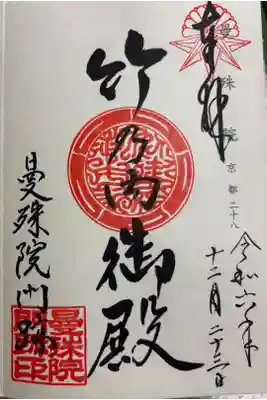 曼殊院 京都二十八
奉拝
令和六年
十二月二十三日
竹乃内御殿
曼殊院門跡
曼殊院